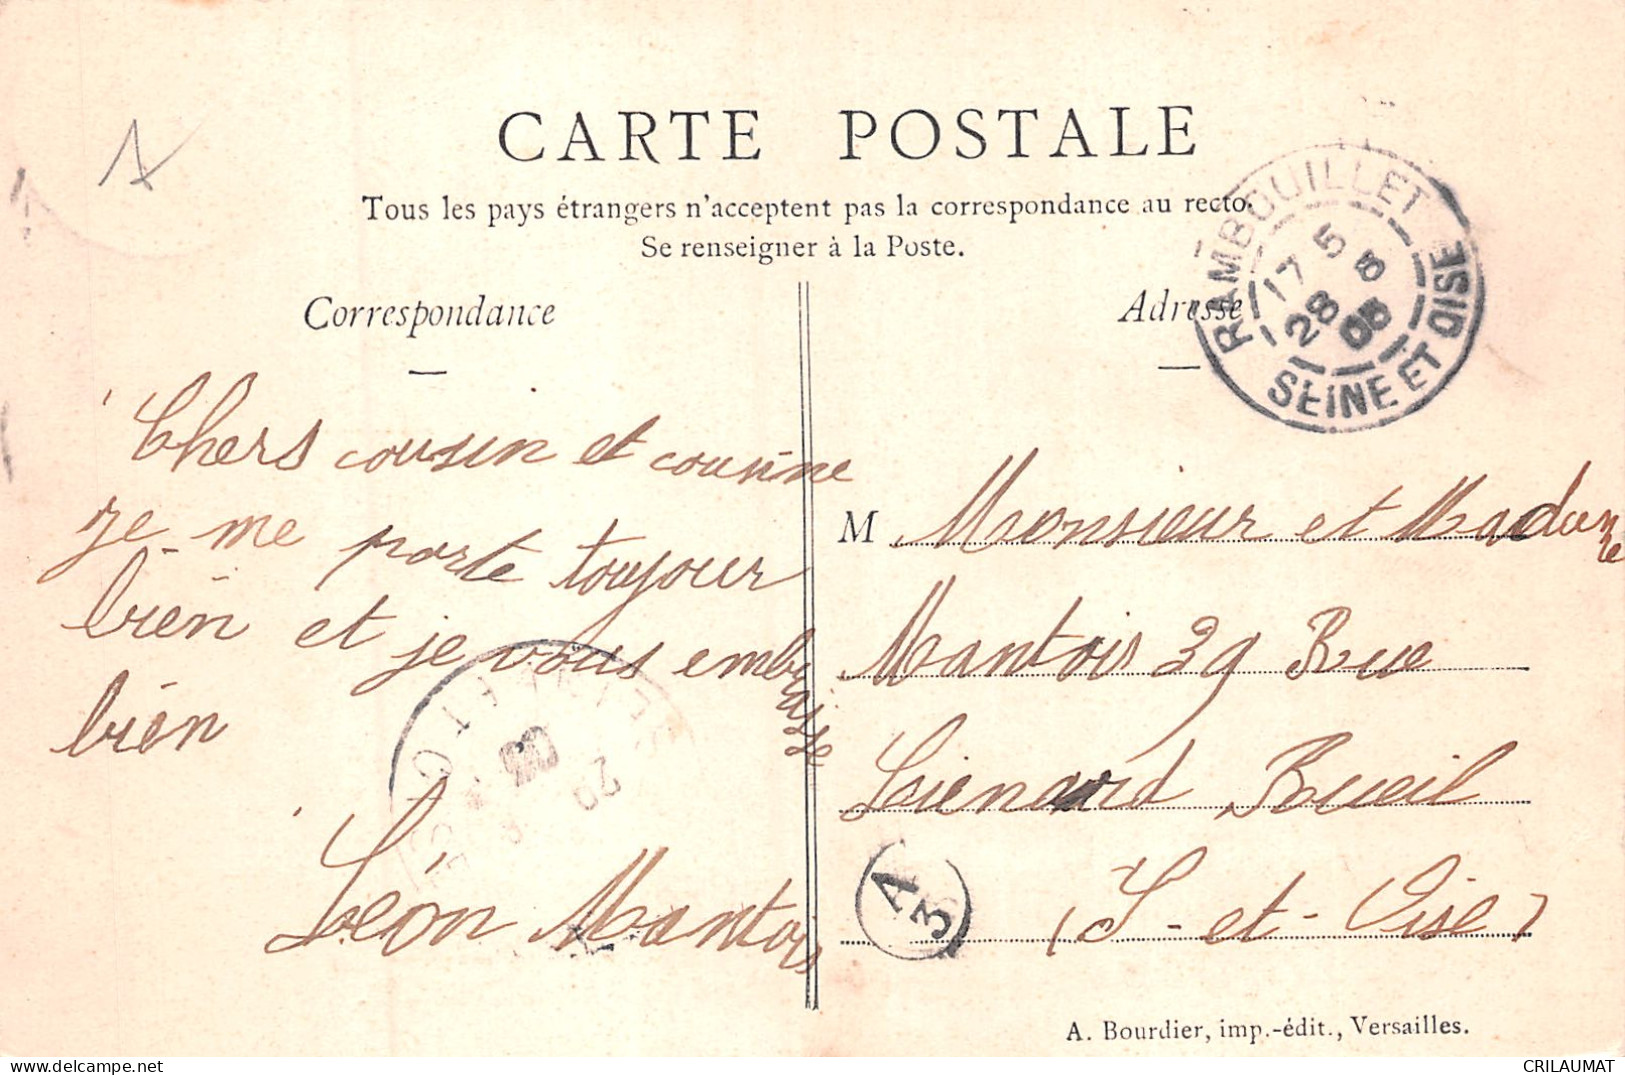 CARTE POSTALE
Tous les pays étrangers n'acceptent pas la correspondance au recto.
Se renseigner à la Poste.
Correspondance
Adresse
RAMBOUILLET
17 5
28 8
05
SEINE ET OISE
Chers cousin et cousine
je me porte toujour
bien et je vous embrasse
bien
Léon Mantois
M Monsieur et Madame
Mantois 29 Rue
Lienard Rueil
(S-et-Oise)
A
3
A. Bourdier, imp.-édit., Versailles.
CRILAUMAT